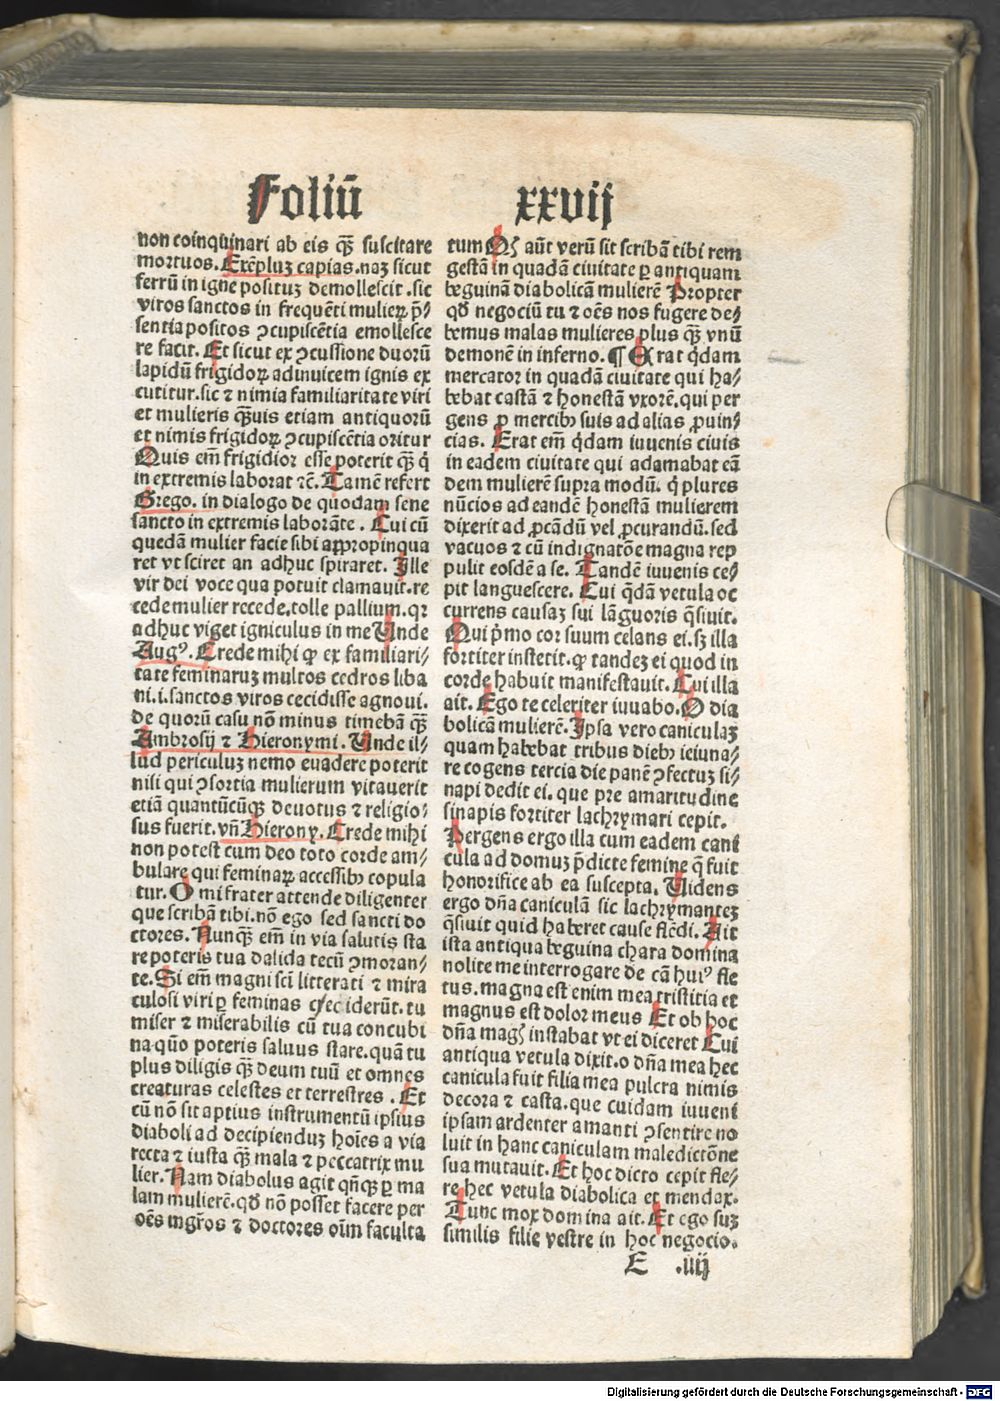 Foliū xxvij
non coinquinari ab eis qꝫ̄ suscitare
mortuos. Exēpluꝫ capias. naꝫ sicut
ferrū in igne posituꝫ demollescit. sic
viros sanctos in frequēti mulieꝝ p̄⸗
sentia positos ↄcupiscētia emollesce
re facit. Et sicut ex ↄcussione duorū
lapidū frigidoꝝ adinuicem ignis ex
cutitur. sic ⁊ nimia familiaritate viri
et mulieris qꝫ̄uis etiam antiquorū
et nimis frigidoꝝ ↄcupiscētia oritur
Quis em̄ frigidior esse poterit qꝫ̄ q̄
in extremis laborat ⁊c̄. Tamē refert
Grego. in dialogo de quodam sene
sancto in extremis laborāte. Cui cū
quedā mulier facie sibi appropinqua
ret vt sciret an adhuc spiraret. Ille
vir dei voce qua potuit clamauit. re
cede mulier recede. tolle pallium. qꝛ
adhuc viget igniculus in me Unde
Augꝰ. Crede mihi ꝙ ex familiari⸗
tate feminaruꝫ multos cedros liba
ni. i. sanctos viros cecidisse agnoui.
de quorū casu nō minus timebā qꝫ̄
Ambrosij ⁊ Hieronymi. Unde il⸗
lud periculuꝫ nemo euadere poterit
nisi qui ↄsortia mulierum vitauerit
etiā quantūcūqꝫ deuotus ⁊ religio⸗
sus fuerit. vn̄ Hierony. Crede mihi
non potest cum deo toto corde am⸗
bulare qui feminaꝝ accessibꝰ copula
tur. O mi frater attende diligenter
que scribā tibi. nō ego sed sancti do
ctores. Nunqꝫ̄ em̄ in via salutis sta
re poteris tua dalida tecū ↄmoran⸗
te. Si em̄ magni sc̄i litterati ⁊ mira
culosi viri ꝑ feminas ceciderūt. tu
miser ⁊ miserabilis cū tua concubi
na quō poteris saluus stare. quā tu
plus diligis qꝫ̄ deum tuū et omnes
creaturas celestes et terrestres. Et
cū nō sit aptius instrumentū ipsius
diaboli ad decipienduꝫ hoīes a via
recta ⁊ iusta qꝫ̄ mala ⁊ peccatrix mu
lier. Nam diabolus agit qn̄qꝫ ꝑ ma
lam mulierē. qḋ nō posset facere per
oēs mgr̄os ⁊ doctores oīm faculta
tum Qꝫ aūt verū sit scribā tibi rem
gestā in quadā ciuitate ꝑ antiquam
beguinā diabolicā mulierē Propter
qḋ negociū tu ⁊ oēs nos fugere de⸗
bemus malas mulieres plus qꝫ̄ vnū
demonē in inferno. ¶ Erat qḋam
mercator in quadā ciuitate qui ha⸗
bebat castā ⁊ honestā vxorē. qui per
gens ꝓ mercibꝰ suis ad alias ꝓuin⸗
cias. Erat em̄ qḋam iuuenis ciuis
in eadem ciuitate qui adamabat eā
dem mulierē supra modū. q̄ plures
nūcios ad eandē honestā mulierem
dixerit ad ꝓcādū vel ꝓcurandū. sed
vacuos ⁊ cū indignatōe magna rep
pulit eosdē a se. Tandē iuuenis ce⸗
pit languescere. Cui qḋā vetula oc
currens causaꝫ sui lāguoris q̄siuit.
Qui p̄mo cor suum celans ei. sꝫ illa
fortiter institit. ꝙ tandeꝫ ei quod in
corde habuit manifestauit. Cui illa
ait. Ego te celeriter iuuabo. O dia
bolicā mulierē. Ipsa vero caniculaꝫ
quam habebat tribus diebꝰ ieiuna⸗
re cogens tercia die panē ↄfectuꝫ si⸗
napi dedit ei. que pre amaritudine
sinapis fortiter lachrymari cepit.
Pergens ergo illa cum eadem cani
cula ad domuꝫ p̄dicte femine q̄ fuit
honorifice ab ea suscepta. Uidens
ergo dn̄a caniculā sic lachrymanteꝫ
q̄siuit quid haberet cause flēdi. Ait
ista antiqua beguina chara domina
nolite me interrogare de cā huiꝰ fle
tus. magna est enim mea tristitia et
magnus est dolor meus Et ob hoc
dn̄a magꝭ instabat vt ei diceret Cui
antiqua vetula dixit. o dn̄a mea hec
canicula fuit filia mea pulcra nimis
decora ⁊ casta. que cuidam iuueni
ipsam ardenter amanti ↄsentire no
luit in hanc caniculam maledictōne
sua mutauit. Et hoc dicto cepit fle⸗
re hec vetula diabolica et mendax.
Tunc mox domina ait. Et ego suꝫ
similis filie vestre in hoc negocio.
E .iiij
Digitalisierung gefördert durch die Deutsche Forschungsgemeinschaft - DFG